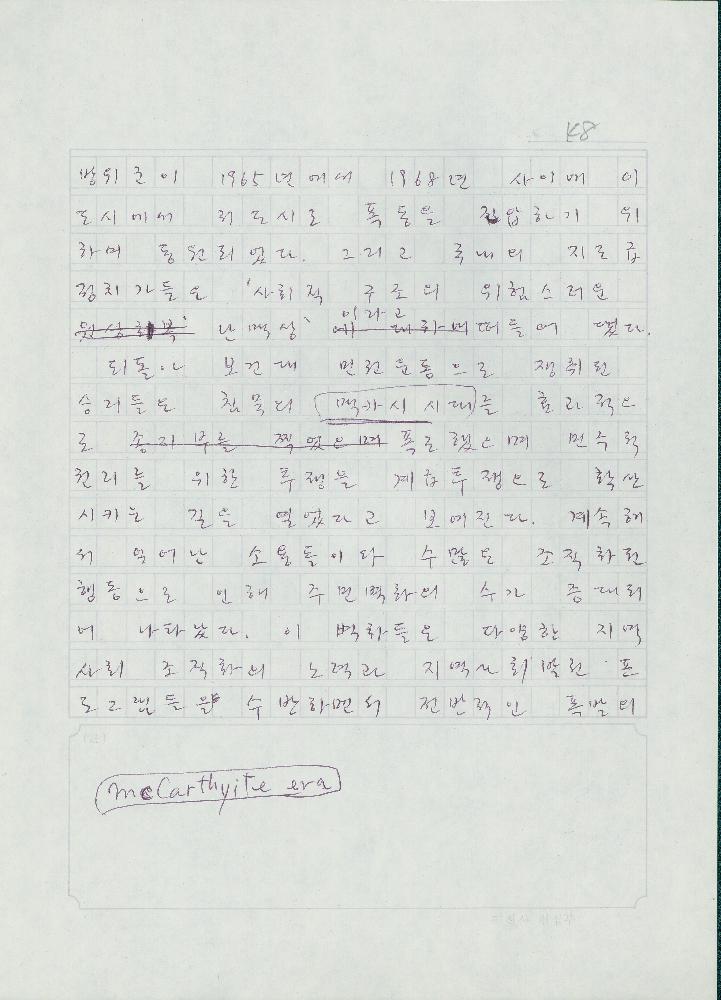 K8
방위군이 1965년에서 1968년 사이에 이
도시에서 저 도시로 폭동을 진압하기 위
하며 동원되었다. 그리고 국내의 지도급
정치가들은 '사회적 구조의 위험스러운
이라고
난맥상' 떠들어 댔다.
되돌아 보건대 민권운동으로 쟁취된
승리들은 침묵의 맥카시 시대를 효과적으
로 종지부를 찍었으며 폭로했으며 민주적
권리를 위한 투쟁을 계급투쟁으로 확산
시키는 길을 열었다고 보여진다. 계속해
서 일어난 소용돌이와 수많은 조직화된
행동으로 인해 주민벽화의 수가 증대되
어 나타났다. 이 벽화들은 다양한 지역
사회 조직화의 노력과 지역사회발런 프
로그램들을 수반하면서 전반적인 폭발의
McCarthyite era